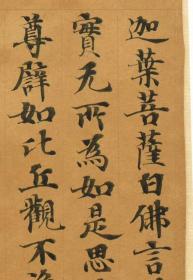 迦葉菩薩白佛言
實无所為如是思
尊譬如比丘觀不